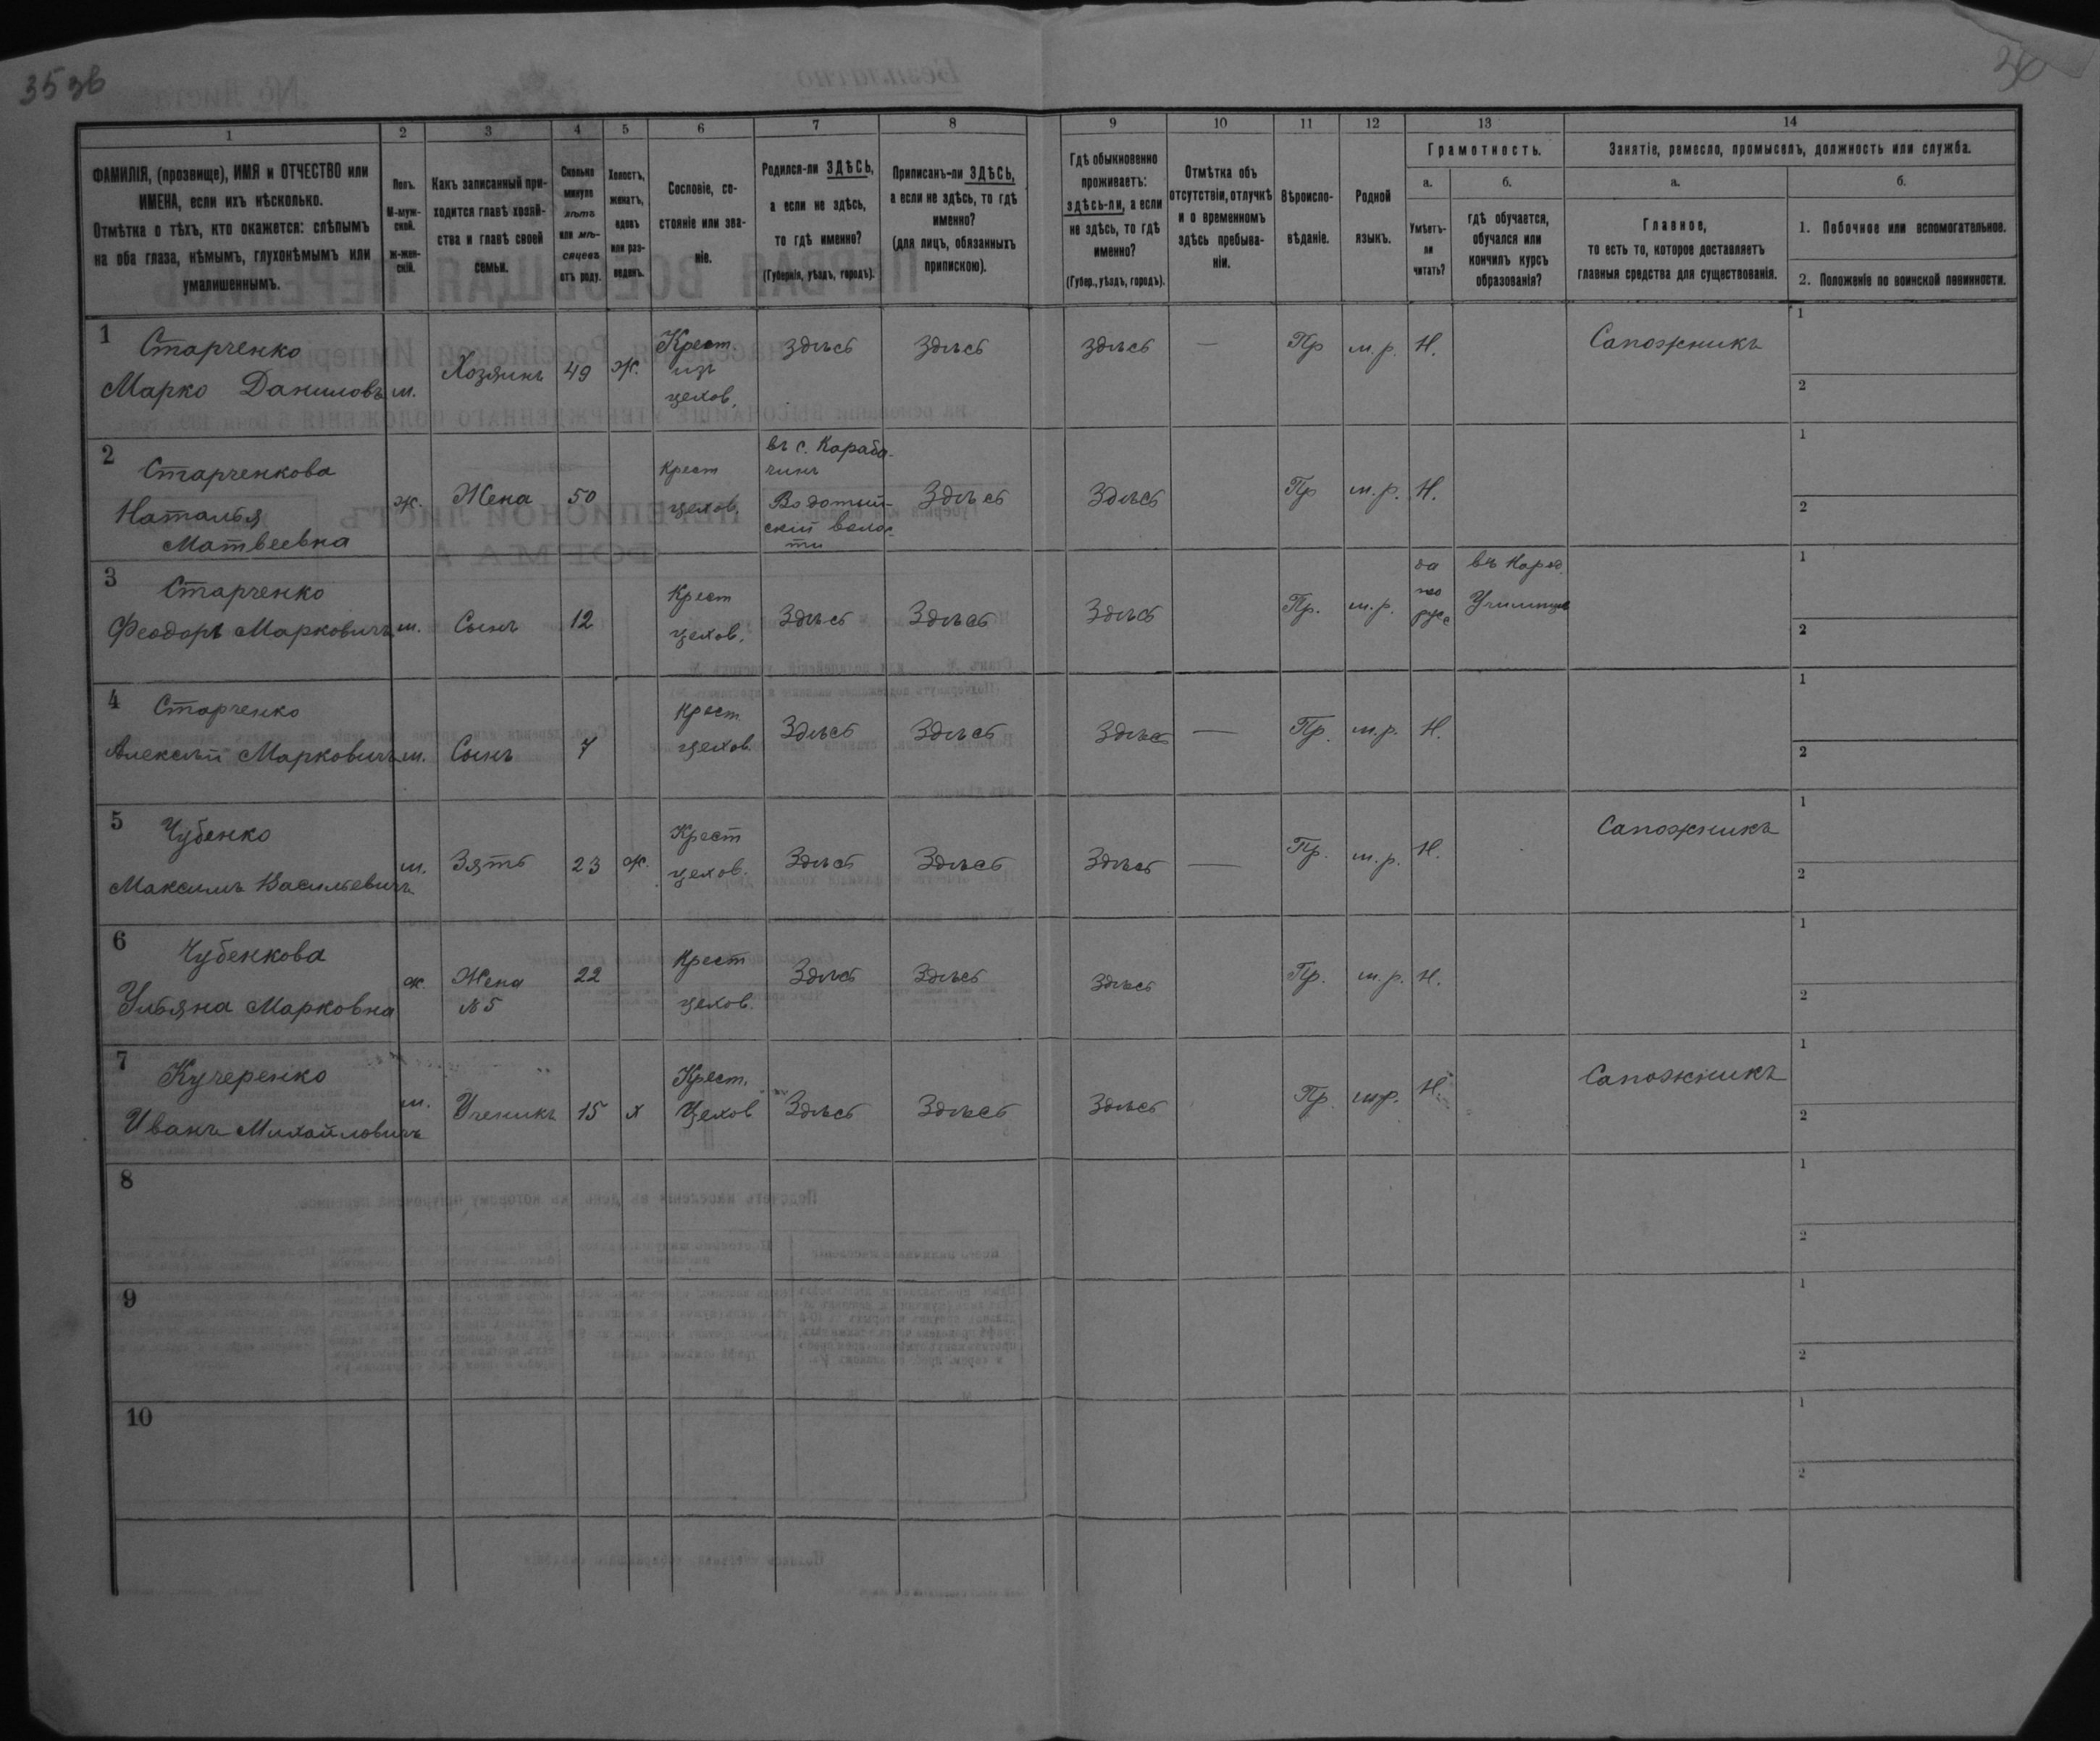 35 зв
36
1 2 3 4 5 6 7 8 9 10 11 12 13 14
ФАМИЛІЯ, (прозвище), ИМЯ и ОТЧЕСТВО или
ИМЕНА, если ихъ нѣсколько.
Отмѣтка о тѣхъ, кто окажется: слѣпымъ
на оба глаза, нѣмымъ, глухонѣмымъ или
умалишеннымъ.
Полъ.
М-муж-
ской.
ж-жен-
скій.
Какъ записанный при-
ходится главѣ хозяй-
ства и главѣ своей
семьи.
Сколько
минуло
лѣтъ
или мѣ-
сяцевъ
отъ роду.
Холостъ,
женатъ,
вдовъ
или раз-
веденъ.
Сословіе, со-
стояніе или зва-
ніе.
Родился-ли ЗДѢСЬ,
а если не здѣсь,
то гдѣ именно?
(Губернія, уѣздъ, городъ).
Приписанъ-ли ЗДѢСЬ,
а если не здѣсь, то гдѣ
именно?
(для лицъ, обязанныхъ
припискою).
Гдѣ обыкновенно
проживаетъ:
здѣсь-ли, а если
не здѣсь, то гдѣ
именно?
(Губер., уѣздъ, городъ).
Отмѣтка объ
отсутствіи, отлучкѣ
и о временномъ
здѣсь пребыва-
ніи.
Вѣроиспо-
вѣданіе.
Родной
языкъ.
Грамотность.
а.
Умѣетъ-
ли
читать?
б.
гдѣ обучается,
обучался или
кончилъ курсъ
образованія?
Занятіе, ремесло, промыселъ, должность или служба.
а.
Главное,
то есть то, которое доставляетъ
главныя средства для существованія.
б.
1. Побочное или вспомогательное.
2. Положеніе по воинской повинности.
1 Старченко
Марко Даниловъ
м.
Хозяинъ
49
ж.
Крест.
изъ
цехов.
Здѣсь
Здѣсь
Здѣсь
—
Пр
м.р.
Н.
Сапожникъ
1
2
2 Старченкова
Наталья
Матвеевна
ж.
Жена
50
Крест
цехов.
въ с. Караба-
чинъ
Водотый-
ской волос
ти
Здѣсь
Здѣсь
Пр
м.р.
Н.
1
2
3 Старченко
Феодоръ Марковичъ
м.
Сынъ
12
Крест
цехов.
Здѣсь
Здѣсь
Здѣсь
Пр.
м.р.
да
по
рус
въ Народ.
Училищѣ
1
2
4 Старченко
Алексѣй Марковичъ
м.
Сынъ
7
Крест.
цехов.
Здѣсь
Здѣсь
Здѣсь
—
Пр.
м.р.
Н.
1
2
5 Чубенко
Максимъ Васильевичъ
м.
Зять
23
ж.
Крест
цехов.
Здѣсь
Здѣсь
Здѣсь
—
Пр.
м.р.
Н.
Сапожникъ
1
2
6 Чубенкова
Ульяна Марковна
ж.
Жена
№5
22
Крест
цехов.
Здѣсь
Здѣсь
Здѣсь
Пр.
м.р.
Н.
1
2
7 Кучеренко
Иванъ Михайловичъ
м.
Ученикъ
15
х
Крест.
Цехов
Здѣсь
Здѣсь
Здѣсь
Пр.
м.р.
Н.
Сапожникъ
1
2
8
1
2
9
1
2
10
1
2